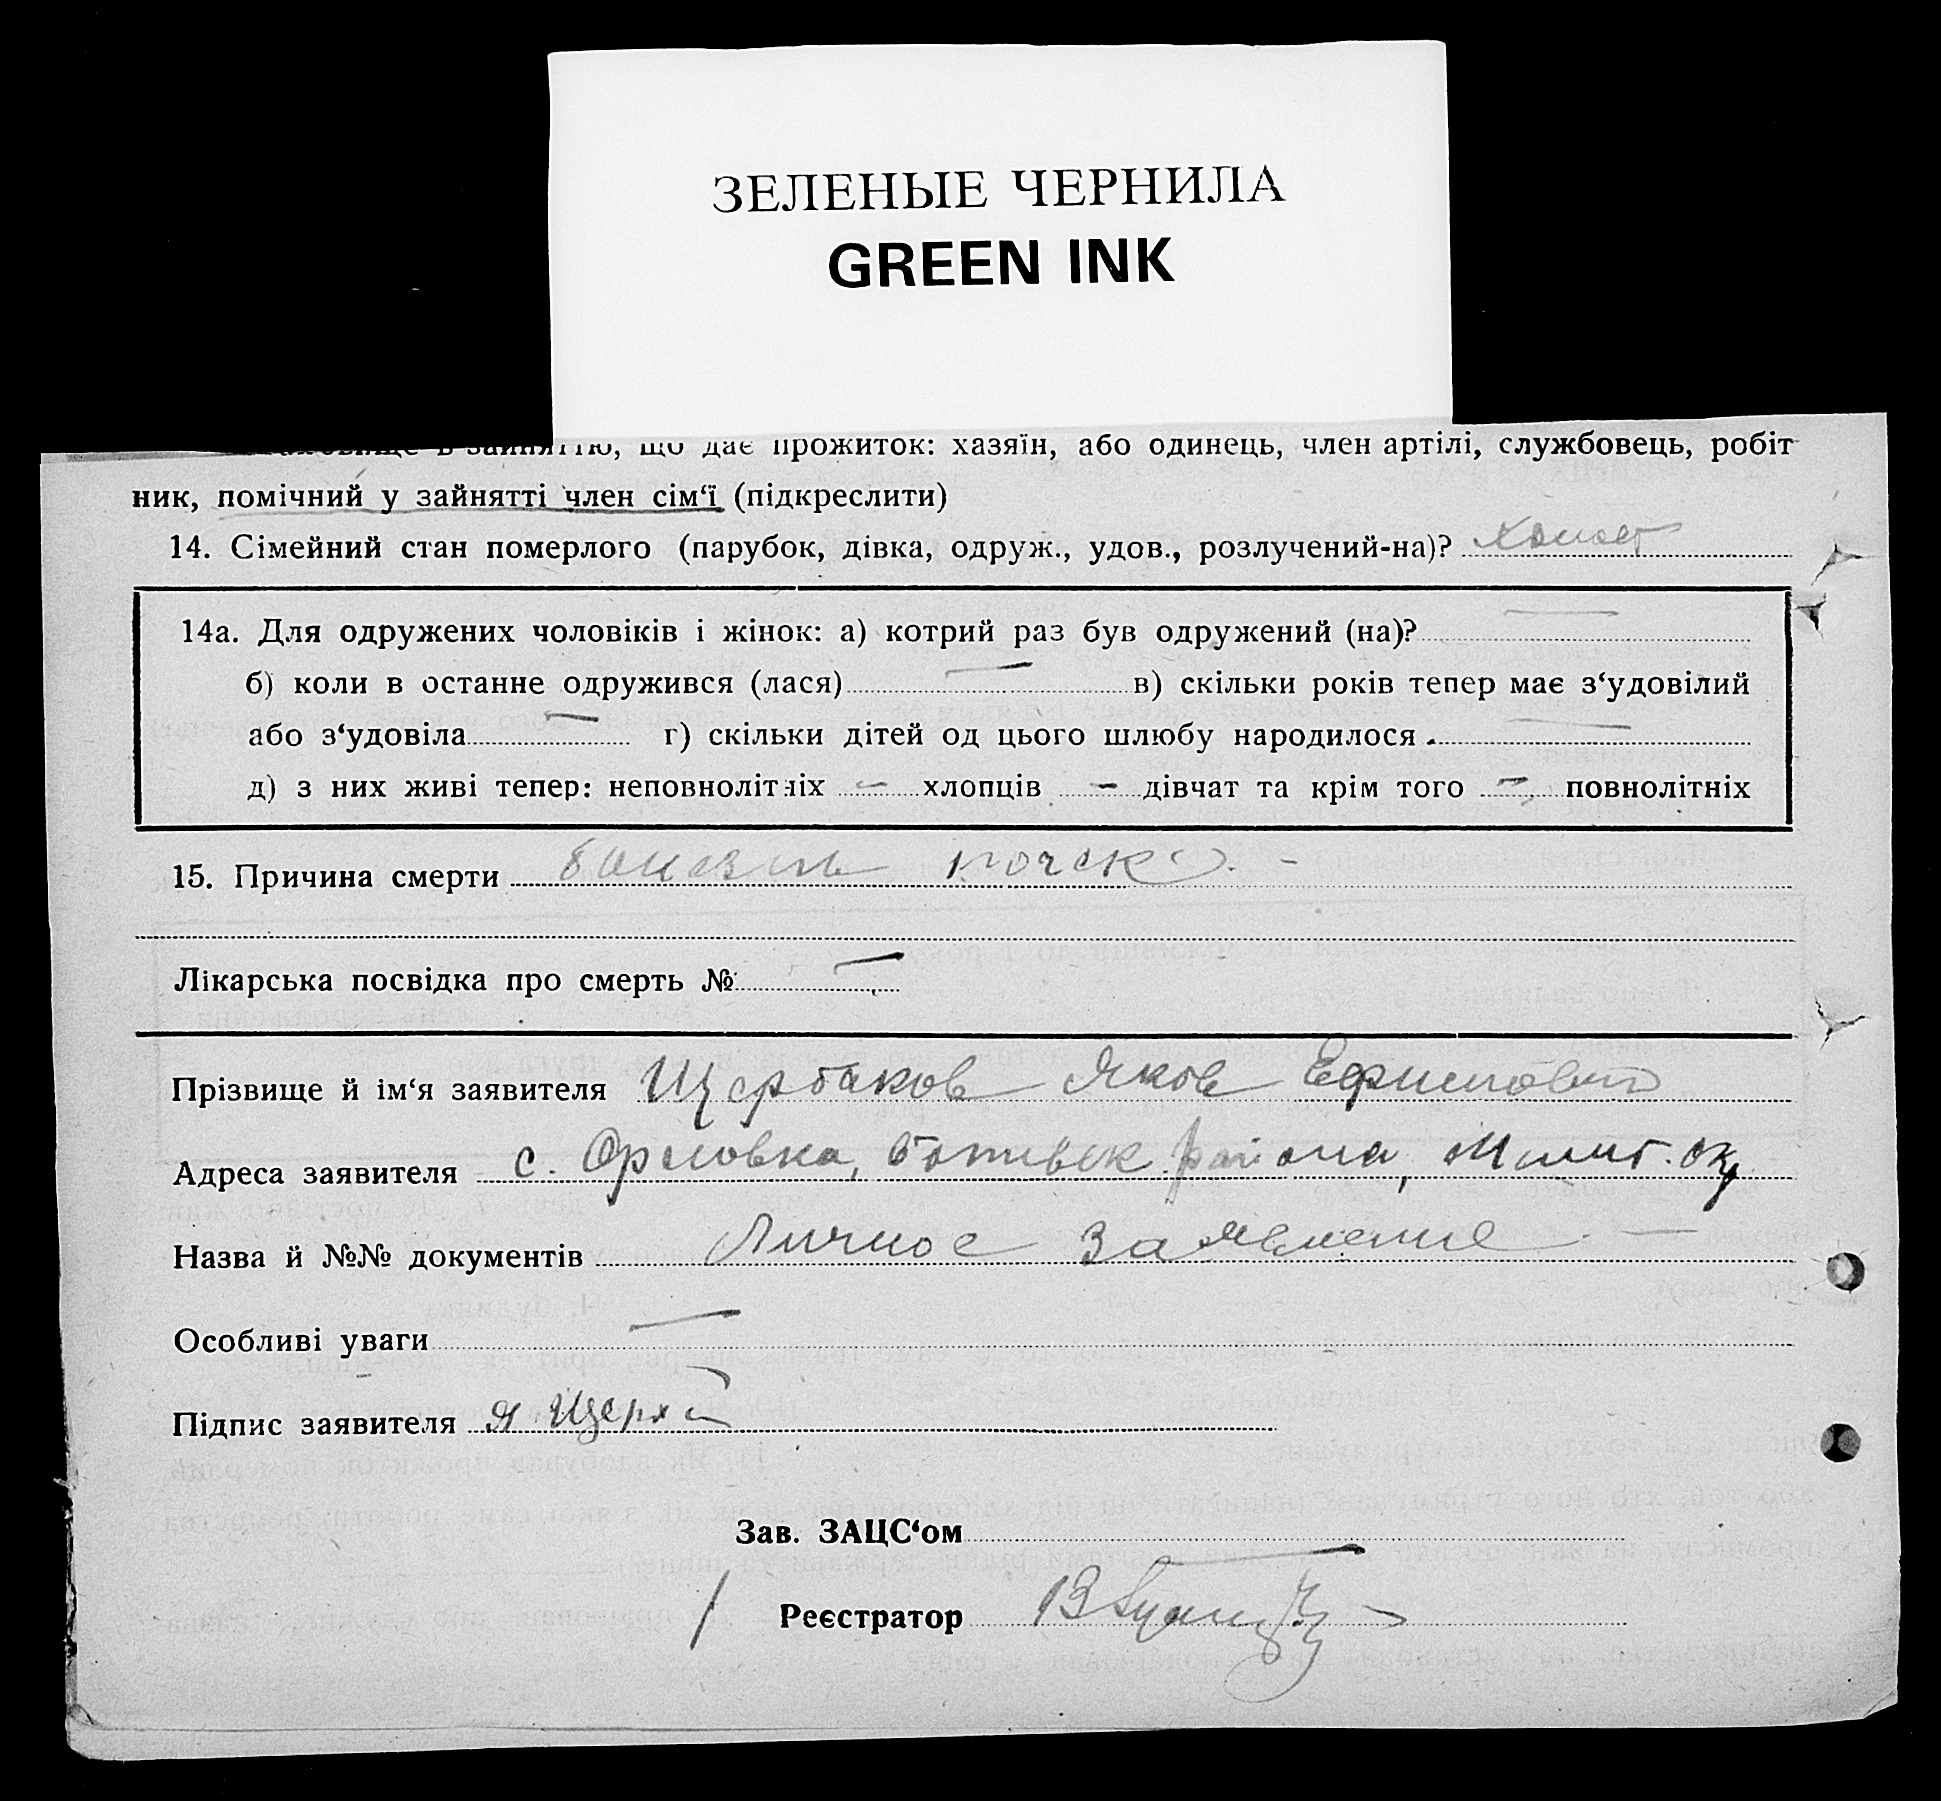 ЗЕЛЕНЫЕ ЧЕРНИЛА
GREEN INK
що дає прожиток: хазяїн, або одинець, член артілі, службовець, робіт
ник, помічний у зайнятті член сім‘ї (підкреслити)
14. Сімейний стан померлого (парубок, дівка, одруж., удов., розлучений-на)? холост
14а. Для одружених чоловіків і жінок: а) котрий раз був одружений (на)? —
б) коли в останне одружився (лася) — в) скільки років тепер має з‘удовілий
або з‘удовіла — г) скільки дітей од цього шлюбу народилося —
д) з них живі тепер: неповнолітніх — хлопців — дівчат та крім того — повнолітніх
15. Причина смерти болезнь почек. -
Лікарська посвідка про смерть № —
Прізвище й ім‘я заявителя Щербаков Яков Ефимович
Адреса заявителя с. Орловка, Ботивск района, Мелит. окр
Назва й №№ документів Личное заявление. —
Особливі уваги —
Підпис заявителя Я Щерб
Зав. ЗАЦС‘ом —
Реєстратор